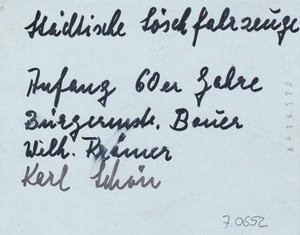 Städtische Löschfahrzeuge
Anfang 60er Jahre
Bürgermstr. Bauer
Wilh. Krämer
Karl Schön
70652